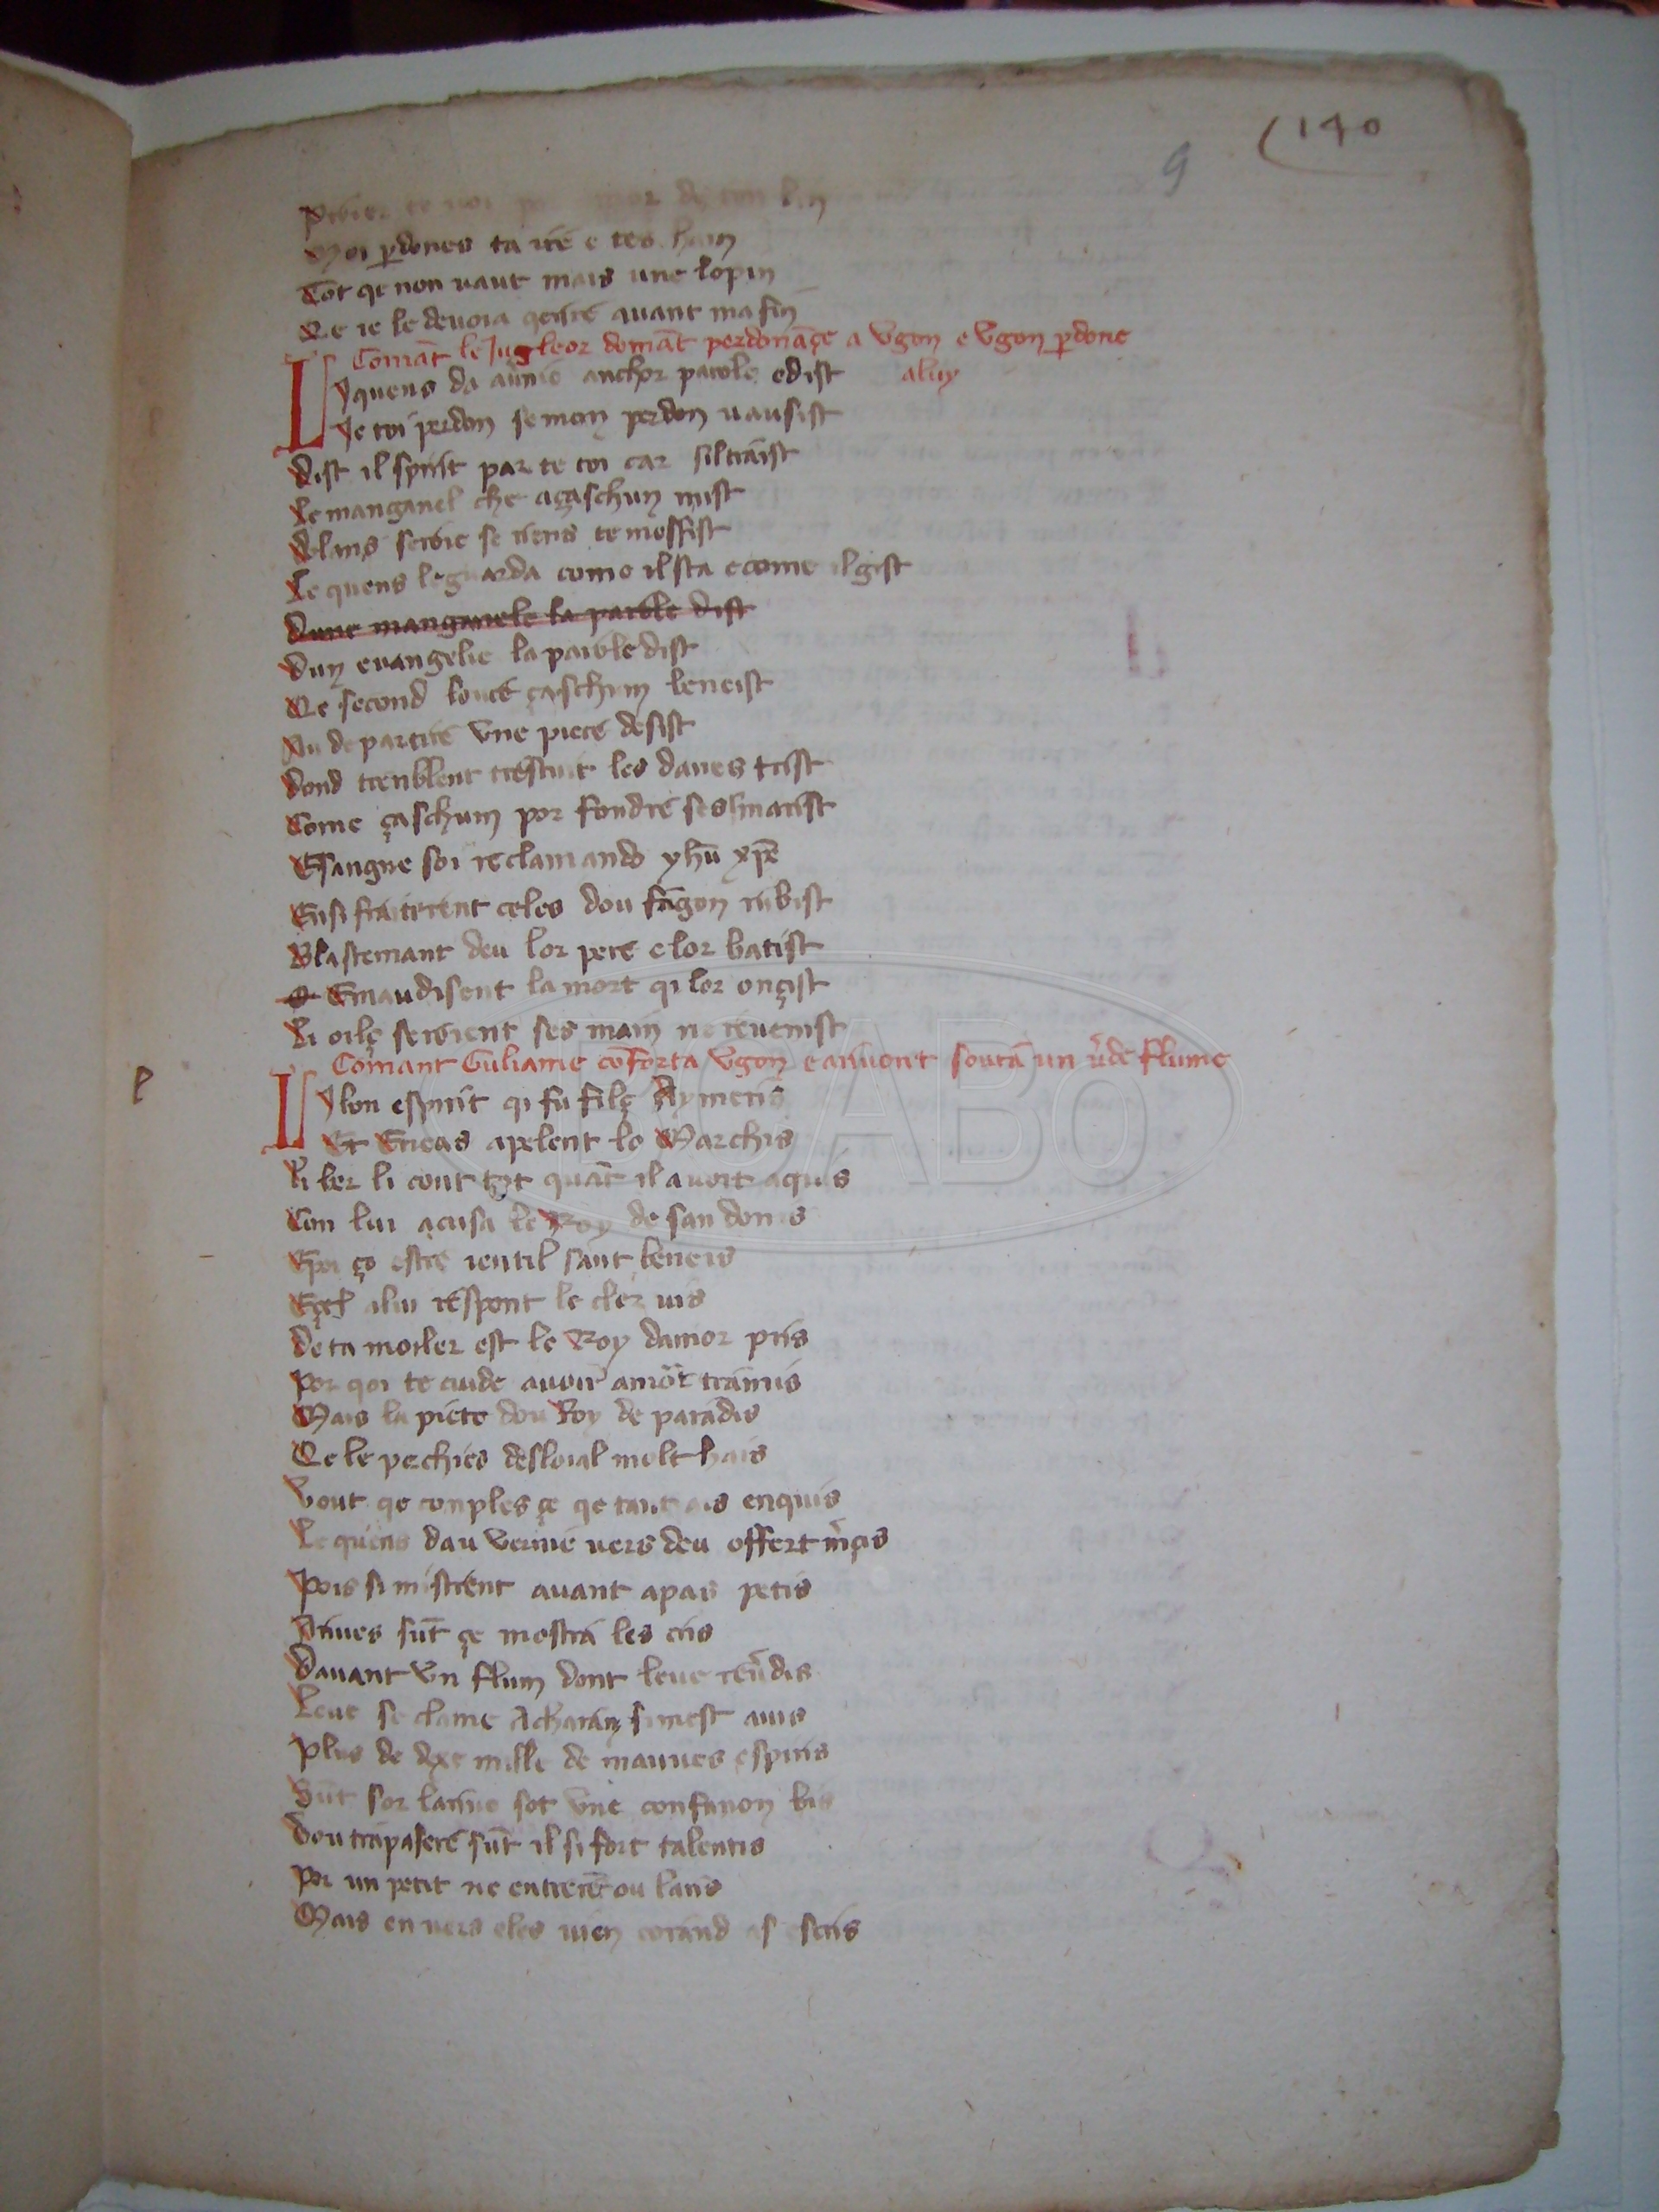 (140
9
Moi perdones ta ire e tes hain
Tot qe non vaut mais une lopin
Qe ie le devoia qerire avant ma fin
Comāt le Jugleor domāt perdonāçe a Vgon e Vgon p̄done
aluy
Ly quens da avernie anchor parole e dist
Je toi perdon se mon perdon vausist
dist il spirit par te toi car sil traist
Le manganel che açaschun mist
Le quens leguarda como il sta e come il gist
Dune manganele la parole dist
Dun evangelie la parole dist
Qe second lovre çaschun beneist
Au departire une piece desist
Dond trenblent trestuit les danes trist
Come çaschum por fondre ses marist
E sangne soi reclamando yhū xp̄e
Ensi fraitrent celes dou fāgon rubist
Blastemant deu lor pere e lor batist
E maudisent la mort qi lor onçist
Comant Guliame cōforta Vgon e arivont soura un v̄ de flume
Ly bon espirit qi fu filç Aymeris
Et Eneas apelent lo Marchis
Li ber li cont tot quāt il avoit aquis
Con lui acusa le Roy de san donis
E por ço estre ientil sant beneis
E cel a lui respont le cler vis
De ta moiler est le Roy damor pris
Por qoi te cuide avoir a mort tramis
Mais la piete dou Roy de paradis
Qe le pechies desloial molt hais
Vout qe conples ce qe tant as enquis
Le quens dau vernie vers deu offert m̄cis
Pois si mistrent avant a pas petis
Arives sūt çe mostra les cris
Davant Vn flum dont leve rev̄dis
Leve se clame Acharan si mest avis
Plus de dxe mille de mauves espiris
Sūt sor larive sot une confanon bis
Dou trapasere sūt il si fort talentis
Por un petit ne entrerēt ou laris
Mais en vers eles vien corand